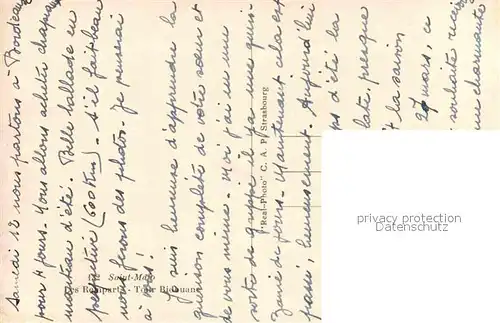 Samedi 12 nous partons à Bordeaux
pour 4 jours. Nous allons acheter chapeau,
manteau d'été. Belle ballade en
perspective (600 Km). S'il fait beau
nous ferons des photos. Je penserai
à vous!
Je suis heureuse d'apprendre la
guérison complète de votre sœur et
de vous même. Moi j'ai eu une
sorte de grippe il y a une quin-
zaine de jours. Maintenant cela est
passé, heureusement. Aujourd'hui
d'été la
late, presque
t la saison
27 mars, a
souhaite
une charmante
172 Saint-Malo
Les Remparts - Tour Bidouane
"Real-Photo" C. A. P. Strasbourg
privacy protection
www.delcampe.net